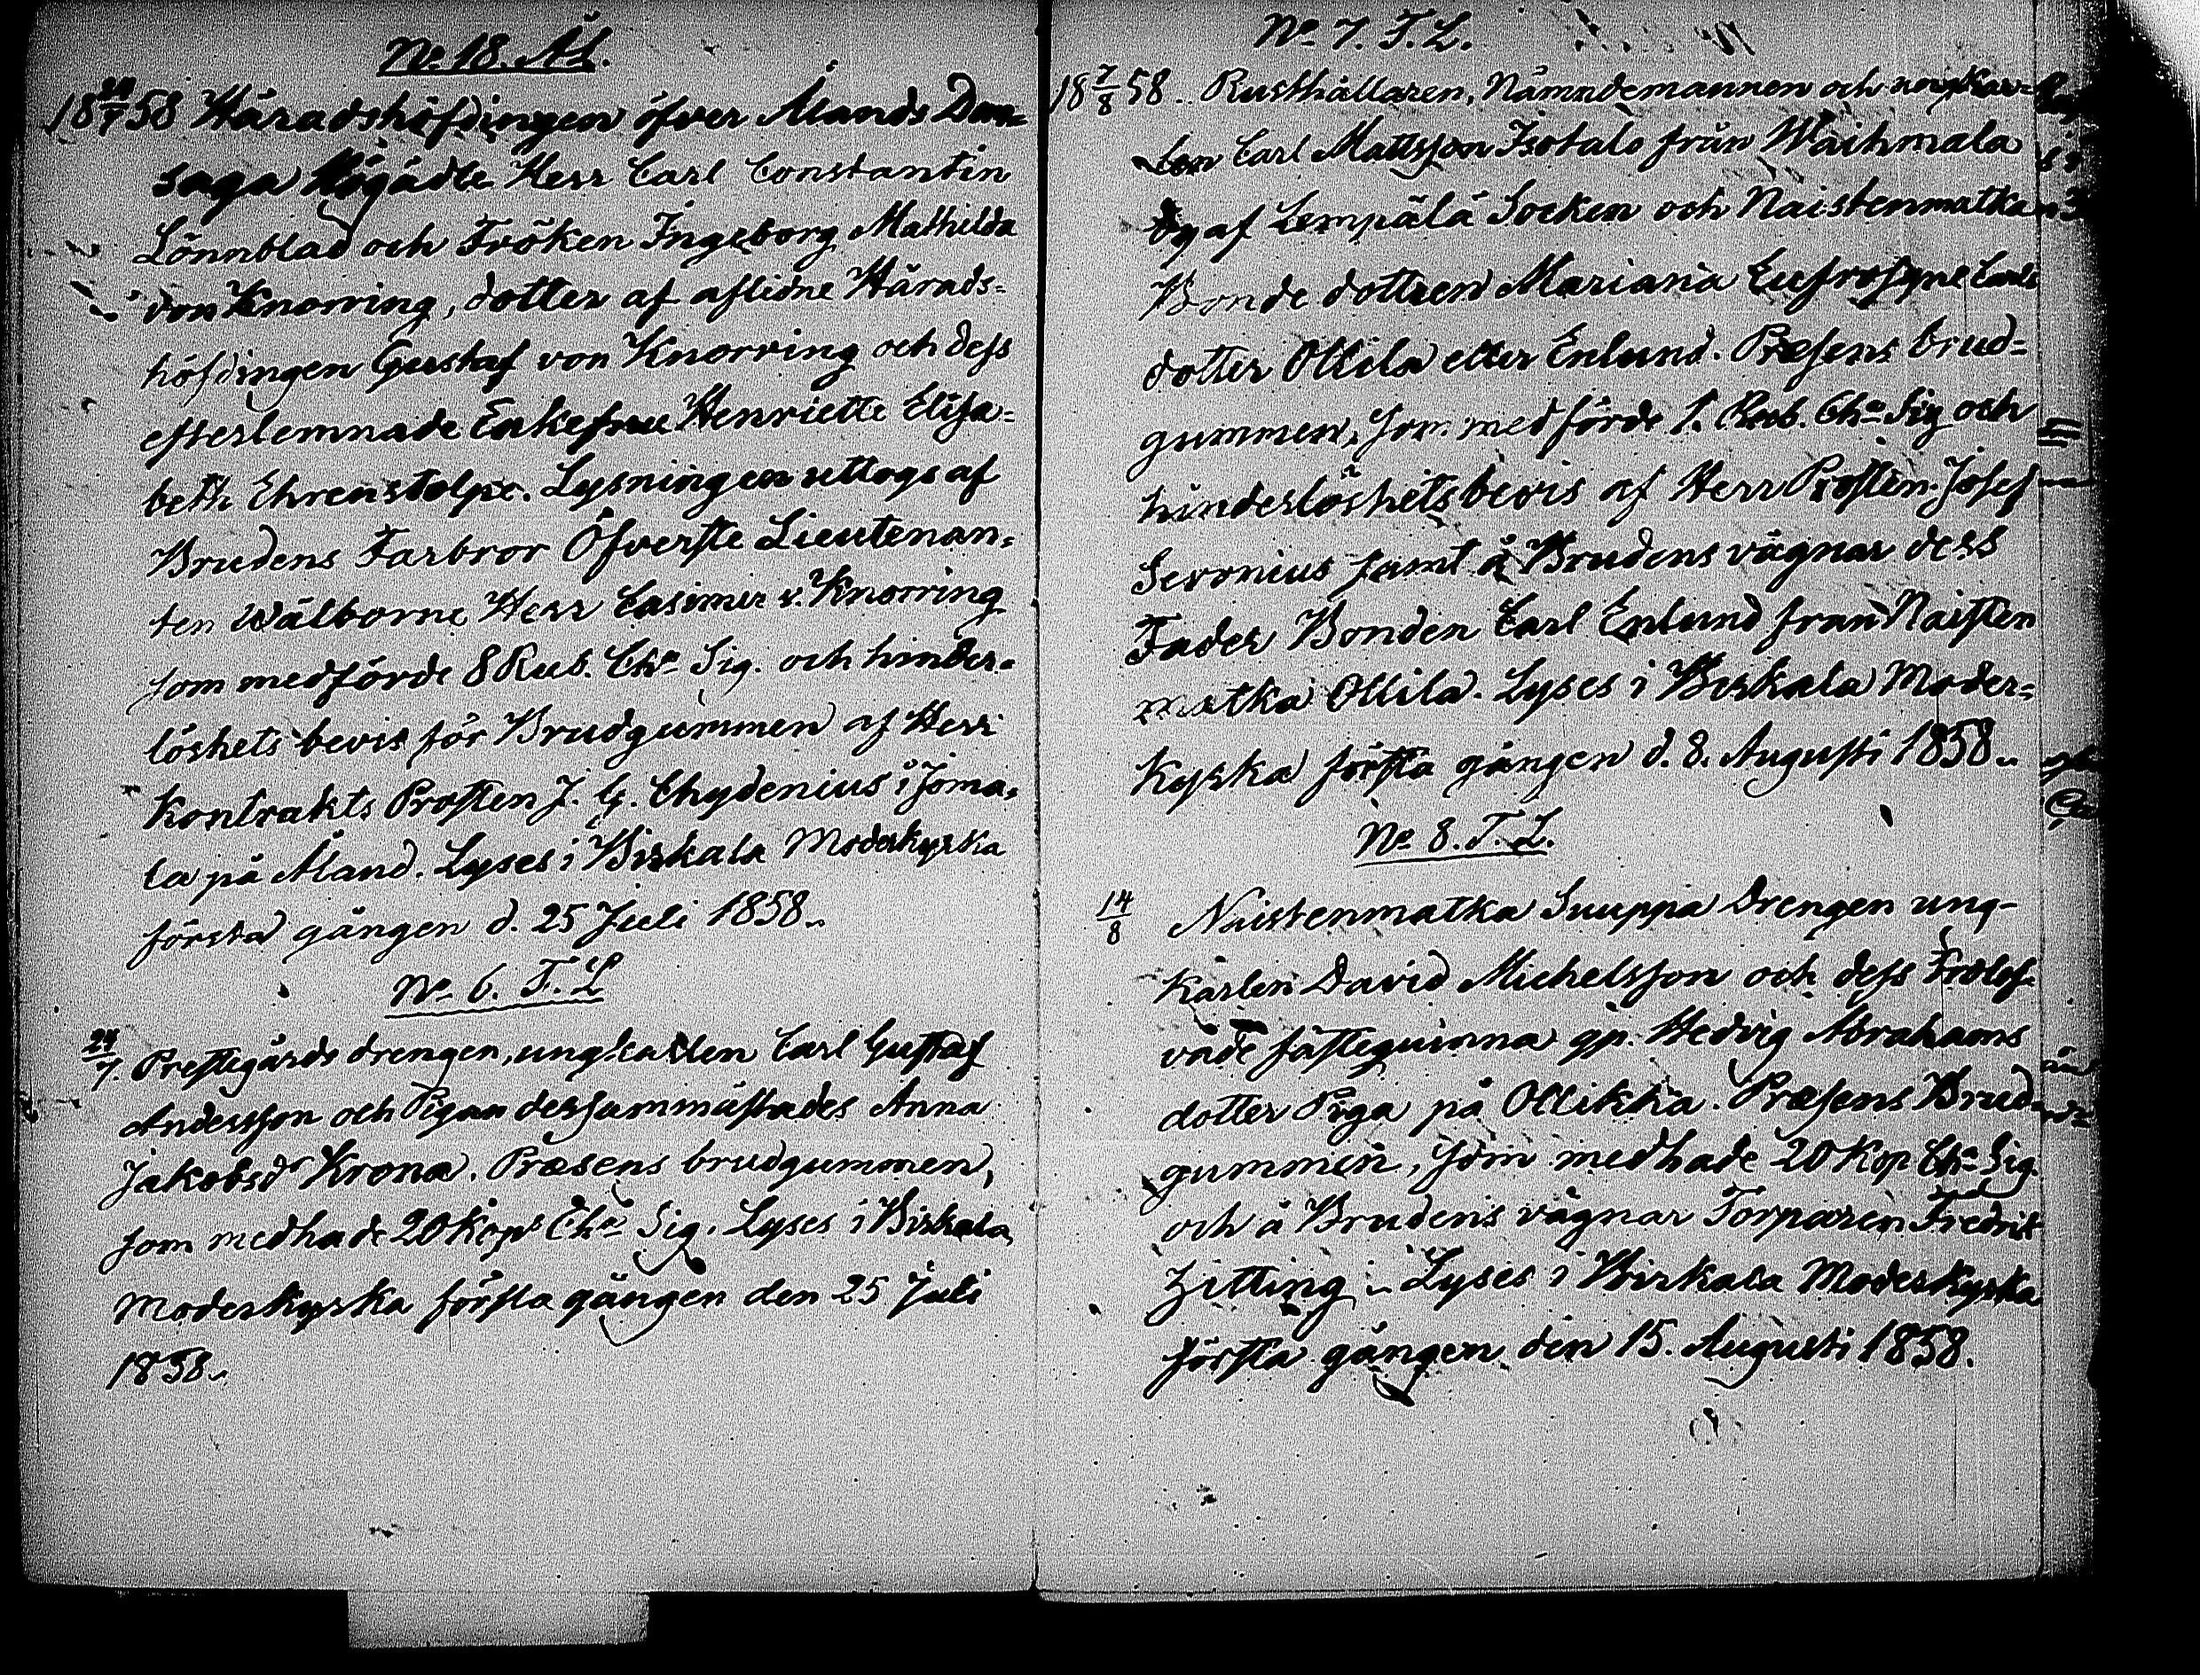 No 18. ÅL.
18 24/7 58 Häradshöfdingen öfver Ålands Dom=
saga Högädle Herr Carl Constantin
Lönnblad och Fröken Ingeborg Mathilda
von Knorring, dotter af aflidne Härads=
höfdingen Gustaf von Knorring och dess
efterlemnade Enkefru Henriette Elisa=
beth Ehrenstolpe. Lysningen uttogs af
Brudens Farbror Öfverste Lieutenan=
ten Wälborne Herr Casimir v. Knorring
som medförde 8 Rub. Cha Sig. och hinder=
löshets bevis för Brudgummen af Herr
Kontrakts Prosten J. G. Chydenius i Joma=
la på Åland. Lyses i Birkala Moderkyrka
första gången d. 25 Juli 1858.
No 6. T. L
24/7. Prestegårds drengen, ungkarlen Carl Gustaf
Andersson och Pigan dersammastädes Anna
Jakobsd Krona. Præsens brudgummen,
som medhade 20 Kop Cha Sig. Lyses i Birkala
Moderkyrka första gången den 25 Juli
1858.
No 7. T. L.
18 7/8 58. Rusthållaren, Nämndemannen och ungkar=
len Carl Mattsson Isotalo från Waihmala
by af Lempälä Socken och Naistenmatka
Bonde dottren Mariana Eufrosyne Carls
dotter Ollila eller Enlund. Præsens brud=
gummen, som medförde 1. Rub. Cha Sig och
hinderlöshets bevis af Herr Prosten Josef
Seronius samt å Brudens vägnar dess
Fader Bonden Carl Enlund från Naisten
matka Ollila. Lyses i Birkala Moder=
Kyrka första gången d. 8. Augusti 1858.
No 8. T. L.
14/8 Naistenmatka Suuppa Drengen ung-
karlen David Michelsson och dess Trolof
vade fästeqvinna qp. Hedvig Abrahams
dotter Piga på Ollikka. Præsens Brud
gummen, som medhade 20 Kop Cha Sig.
och å Brudens vägnar Torparen Fredrik
Zitting. Lyses i Birkala Moderkyrka
första gången den 15. Augusti 1858.